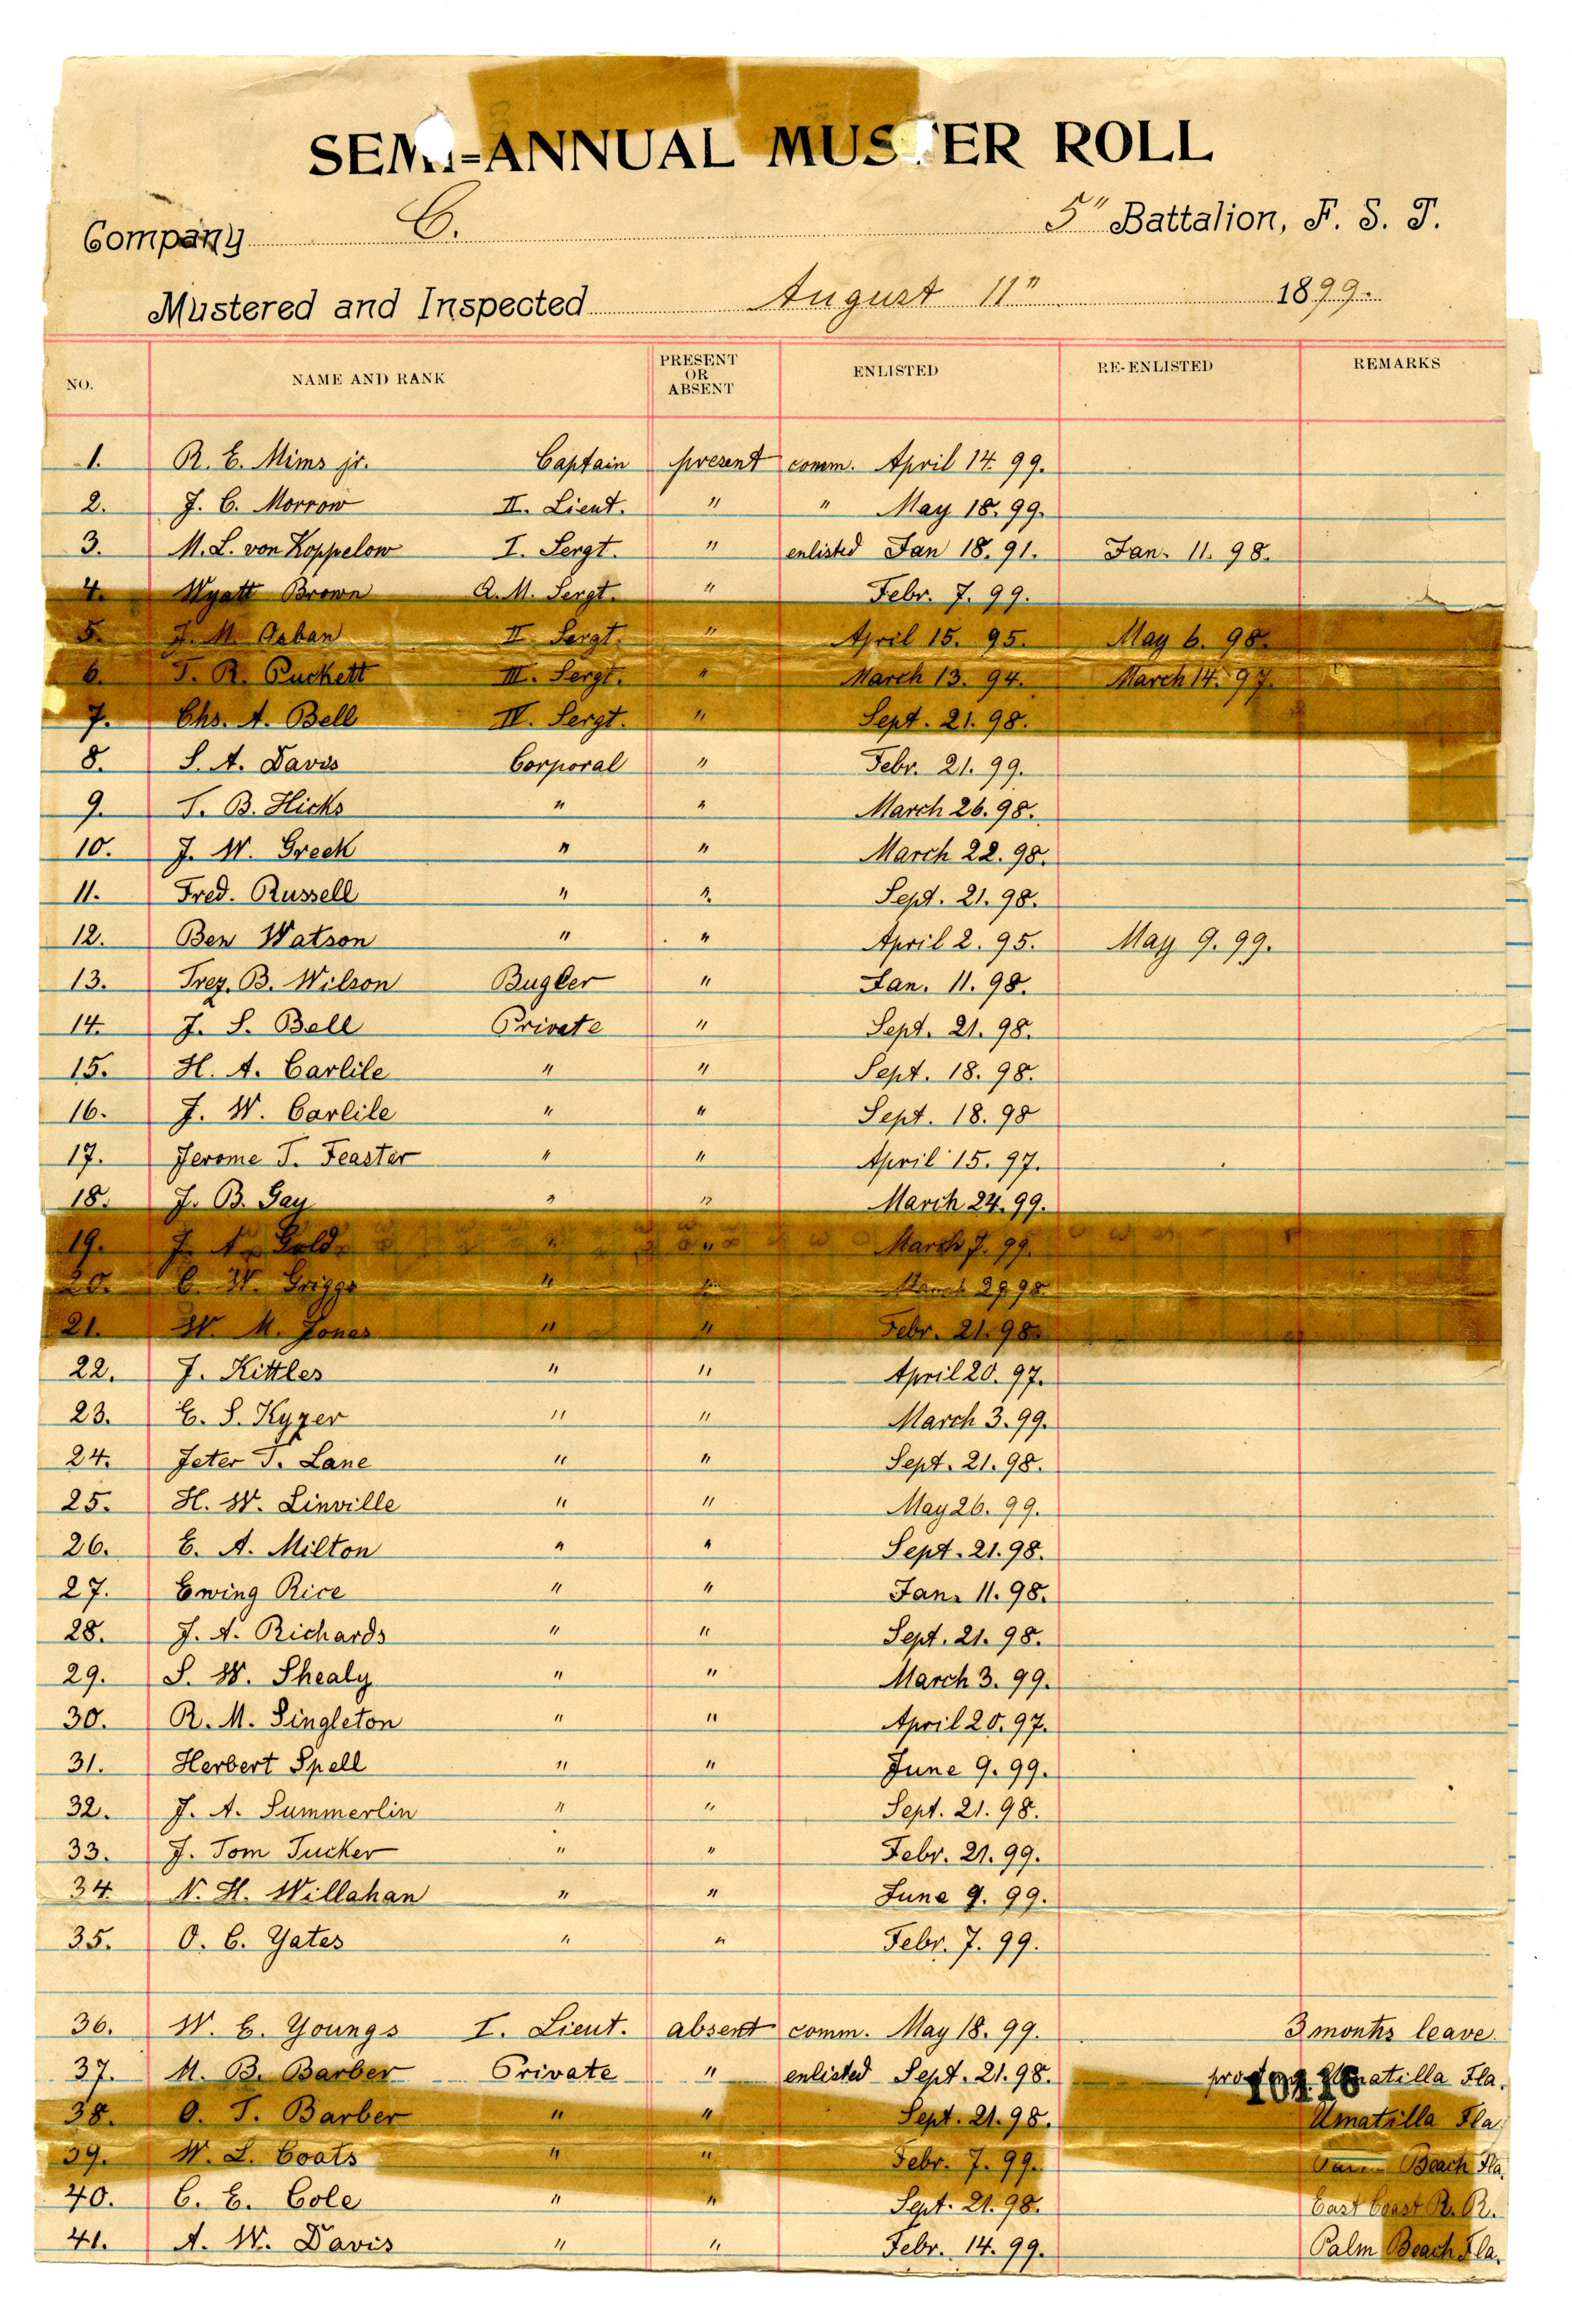 SEMI=ANNUAL MUSTER ROLL
Company C. 5" Battalion, F. S. T.
Mustered and Inspected August 11" 1899.
NO. NAME AND RANK PRESENT OR ABSENT ENLISTED RE-ENLISTED REMARKS
1. R. E. Mims jr. Captain present comm. April 14. 99.
2. J. C. Morrow II. Lieut. " " May 18. 99.
3. M. L. von Koppelow I. Sergt. " enlisted Jan 18. 91. Jan. 11. 98.
4. Wyatt Brown Q. M. Sergt. " Febr. 7. 99.
5. J. M. II Sergt. " April 15. 95. May 6. 98.
6. T. R. Puckett III. Sergt. " March 13. 94. March 14. 97.
7. Chs. A. Bell IV. Sergt. " Sept. 21. 98.
8. S. A. Davis Corporal " Febr. 21. 99.
9. T. B. Hicks " " March 26. 98.
10. J. W. Greek " " March 22. 98.
11. Fred. Russell " " Sept. 21. 98.
12. Ben Watson " " April 2. 95. May 9. 99.
13. Trez. B. Wilson Bugler " Jan. 11. 98.
14. J. S. Bell Private " Sept. 21. 98.
15. H. A. Carlile " " Sept. 18. 98.
16. J. W. Carlile " " Sept. 18. 98
17. Jerome T. Feaster " " April 15. 97.
18. J. B. Gay " " March 24. 99.
19. J. A. Gold " " March 7. 99.
20. C. W. Griggs " " March 29 98
21. W. M. Jones " " Febr. 21. 98.
22. J. Kittles " " April 20. 97.
23. E. S. Kyzer " " March 3. 99.
24. Jeter T. Lane " " Sept. 21. 98.
25. H. W. Linville " " May 26. 99.
26. E. A. Milton " " Sept. 21. 98.
27. Ewing Rice " " Jan. 11. 98.
28. J. A. Richards " " Sept. 21. 98.
29. S. W. Shealy " " March 3. 99.
30. R. M. Singleton " " April 20. 97.
31. Herbert Spell " " June 9. 99.
32. J. A. Summerlin " " Sept. 21. 98.
33. J. Tom Tucker " " Febr. 21. 99.
34. N. H. Willahan " " June 9. 99.
35. O. C. Yates " " Febr. 7. 99.
36. W. E. Youngs I. Lieut. absent comm. May 18. 99. 3 months leave.
37. M. B. Barber Private " enlisted Sept. 21. 98. Umatilla Fla.
10116
38. O. T. Barber " " Sept. 21. 98. Umatilla Fla.
39. W. L. Coats " " Febr. 7. 99. Beach Fla.
40. C. E. Cole " " Sept. 21. 98. East Coast R. R.
41. A. W. Davis " " Febr. 14. 99. Palm Beach Fla.